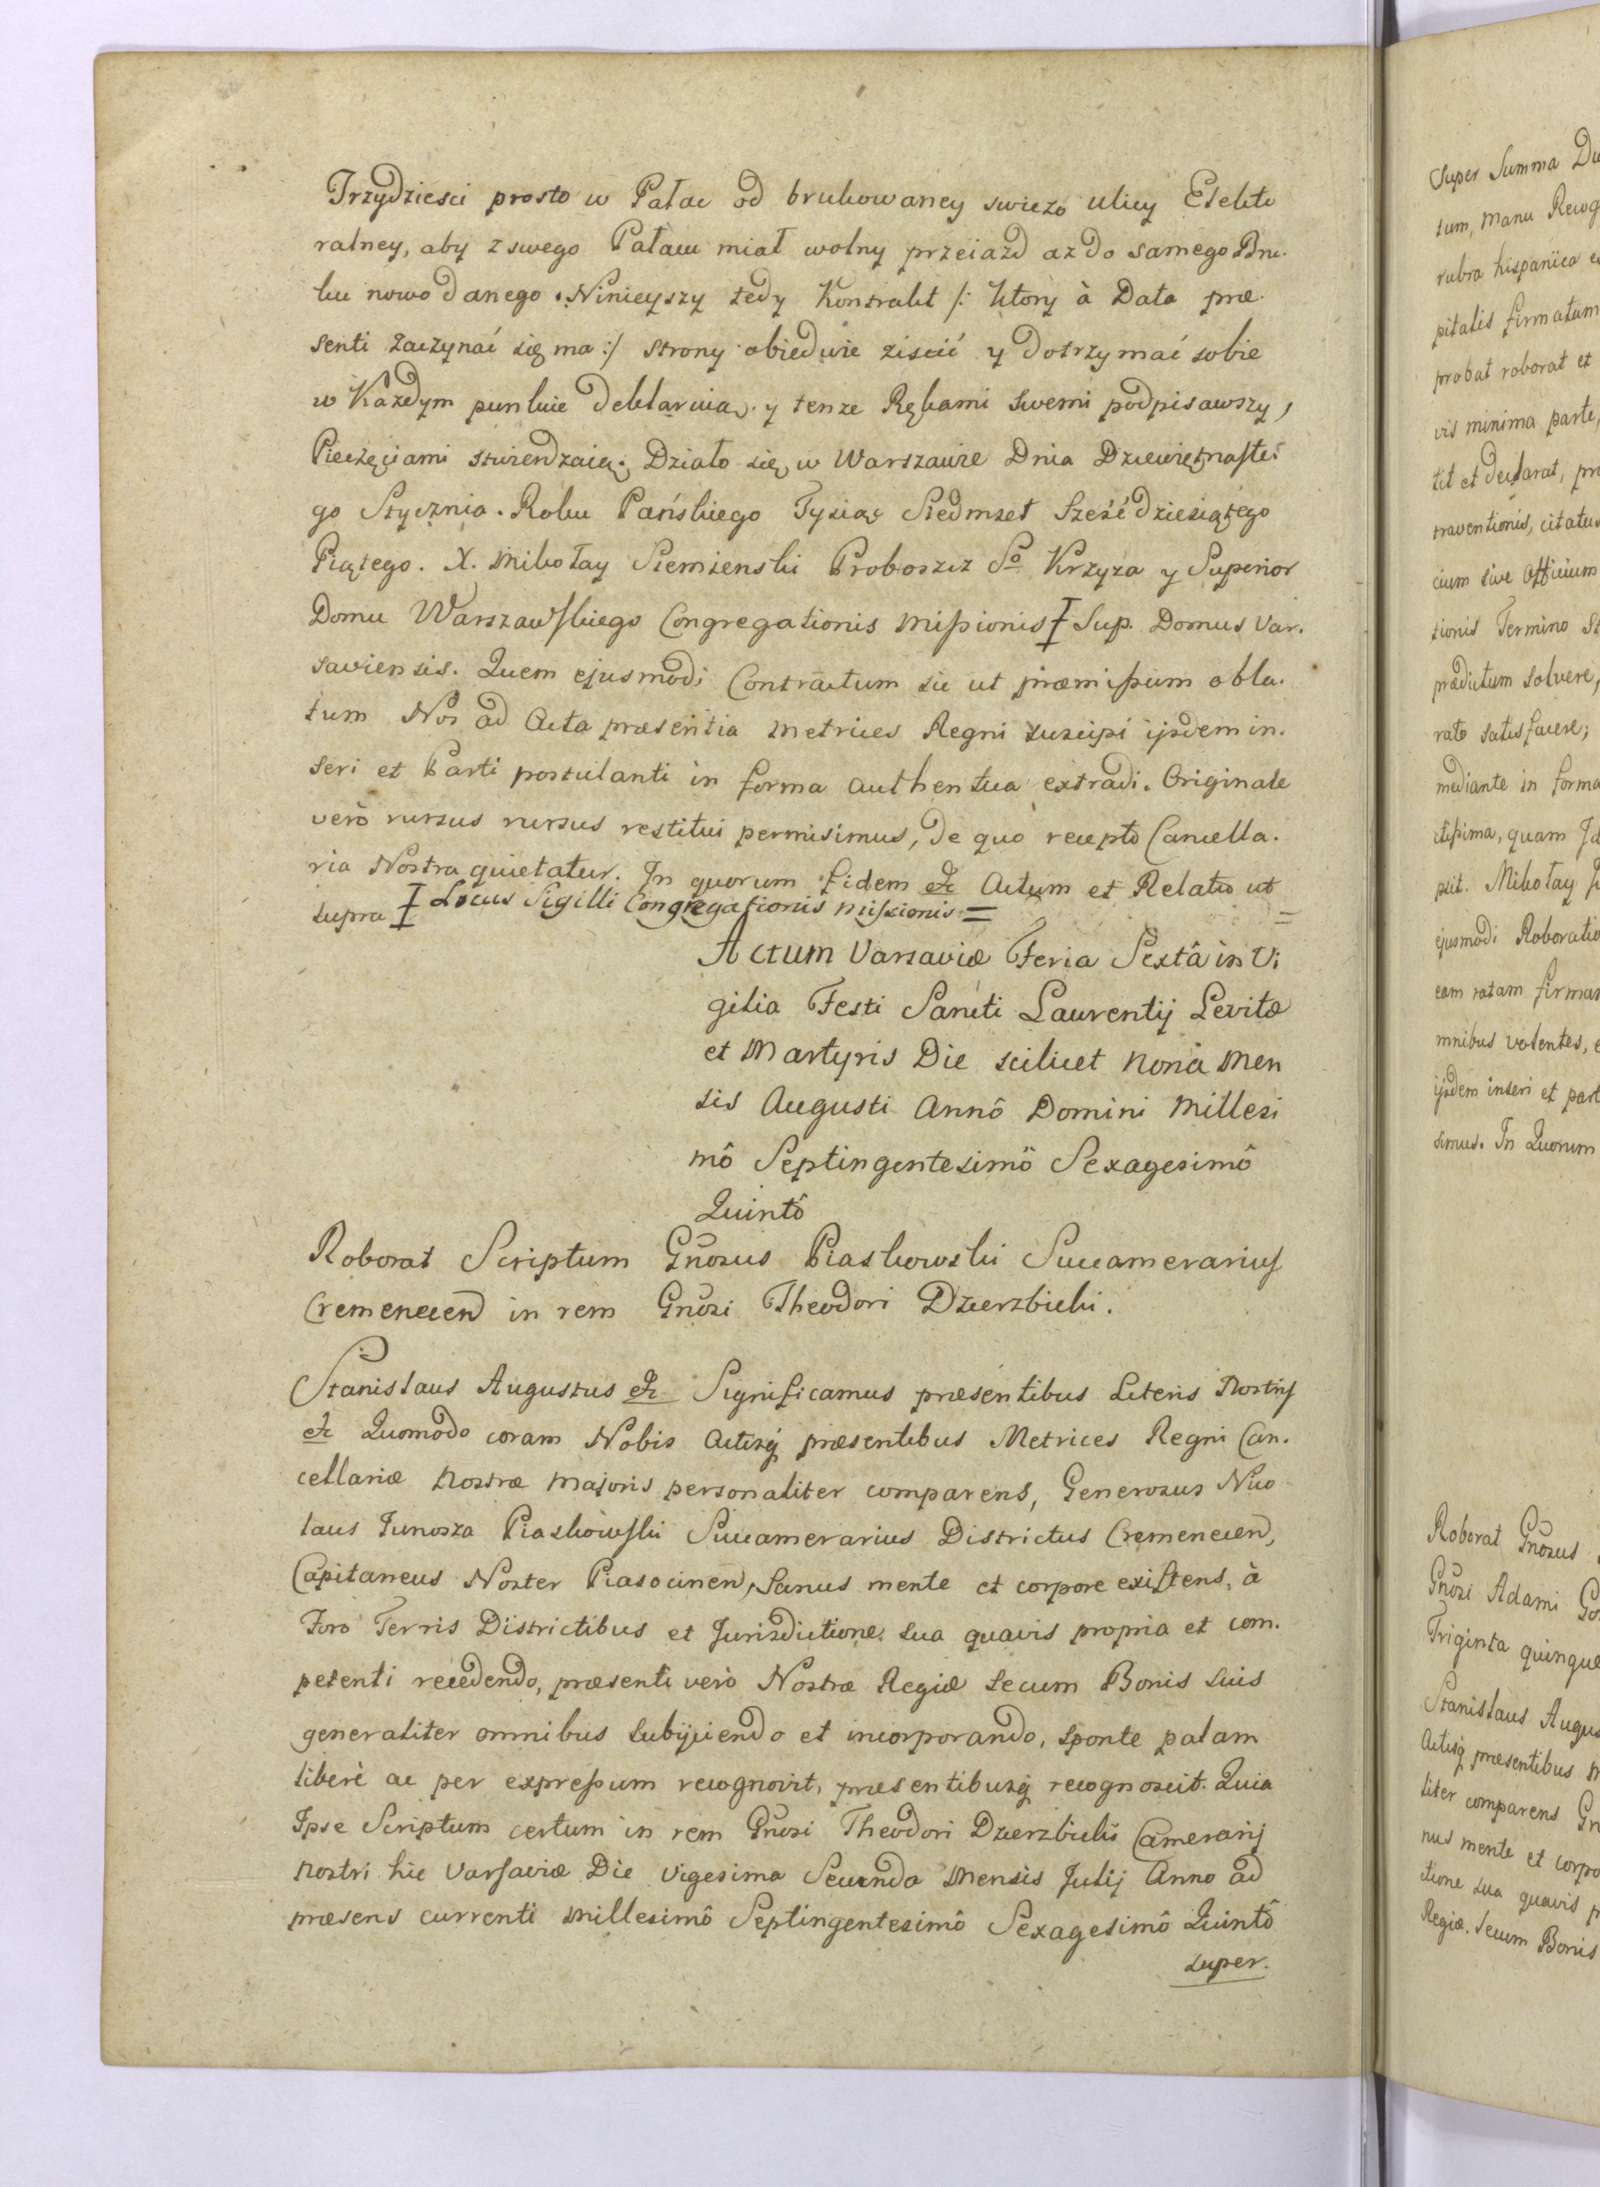 Trzydziesci prosto w Pałac od brukowaney swiezo ulicy Elekto
ralney, aby z swego Pałacu miał wolny przeiazd az do samego Bru.
ku nowo danego. Ninieyszy tedy Kontrakt /: ktory à Data præ
senti zaczynać się ma :/ strony obiedwie ziscić y dotrzymać sobie
w Kazdym punkcie deklaruią. y tenze Rękami swemi podpisawszy,
Pieczęciami stwierdzaią. Działo się w Warszawie Dnia Dziewiętnaste
go Stycznia. Roku Pańskiego Tysiąc Siedmset Sześćdziesiątego
Piątego. X. Mikołay Siemienski Proboszcz So Krzyza y Superior
Domu Warszawskiego Congregationis Missionis Sup. Domus Var.
saviensis. Quem ejusmodi Contractum sic ut præmissum obla.
tum Nos ad Acta præsentia Metrices Regni suscipi ijsdem in.
seri et Parti postulanti in forma authentica extradi. Originale
verò rursus rursus restitui permisimus, de quo recepto Cancella.
ria Nostra quietatur. In quorum fidem etc Actum et Relatio ut
supra Locus Sigilli Congregationis Missionis =
Actum Varsaviæ Feria Sextâ in Vi
gilia Festi Sancti Laurentij Levitæ
et Martyris Die scilicet nona Men
sis Augusti Annô Domini Millesi
mô Septingentesimô Sexagesimô
Quintô
Roborat Scriptum Gnosus Piaskowski Succamerarius
Cremenecen in rem Gnosi Theodori Dzierzbicki.
Stanislaus Augustus etc Significamus præsentibus Literis Nostris
etc Quomodo coram Nobis Actisq præsentibus Metrices Regni Can.
cellariæ Nostræ Majoris personaliter comparens, Generosus Nico
laus Junosza Piaskowski Succamerarius Districtus Cremenecen,
Capitaneus Noster Piasocinen, Sanus mente et corpore existens, à
Foro Terris Districtibus et Jurisdictione sua quavis propria et com.
petenti recedendo, præsenti verò Nostræ Regiæ secum Bonis suis
generaliter omnibus subijciendo et incorporando, sponte palam
liberè ac per expressum recognovit, præsentibusq recognoscit. Quia
Ipse Scriptum certum in rem Gnosi Theodori Dzierzbicki Camerarij
Nostri hic Varsaviæ Die Vigesima Secunda Mensis Julij Anno ad
præsens currenti Millesimô Septingentesimô Sexagesimô Quintô
super.
Super Summa Du
tum, manu Recog
rubra hispanica
pitalis firmatum
probat roborat et
vis minima parte,
tit et declarat, pr
traventionis, citatus
cium sive Officium
tionis Termino St
prædictum solvere,
rato satisfacere;
mediante in forma
ctissima, quam Id
psit. Mikołay
ejusmodi Roboratio
eam ratam firmam
mnibus volentes,
ijsdem inseri et part
simus. In Quorum
Roborat Gnosus
Gnosi Adami
Triginta quinque
Stanislaus Augus
Actisq præsentibus
liter comparens
nus mente et corpo
ctione sua quavis
Regiæ. Secum Bonis